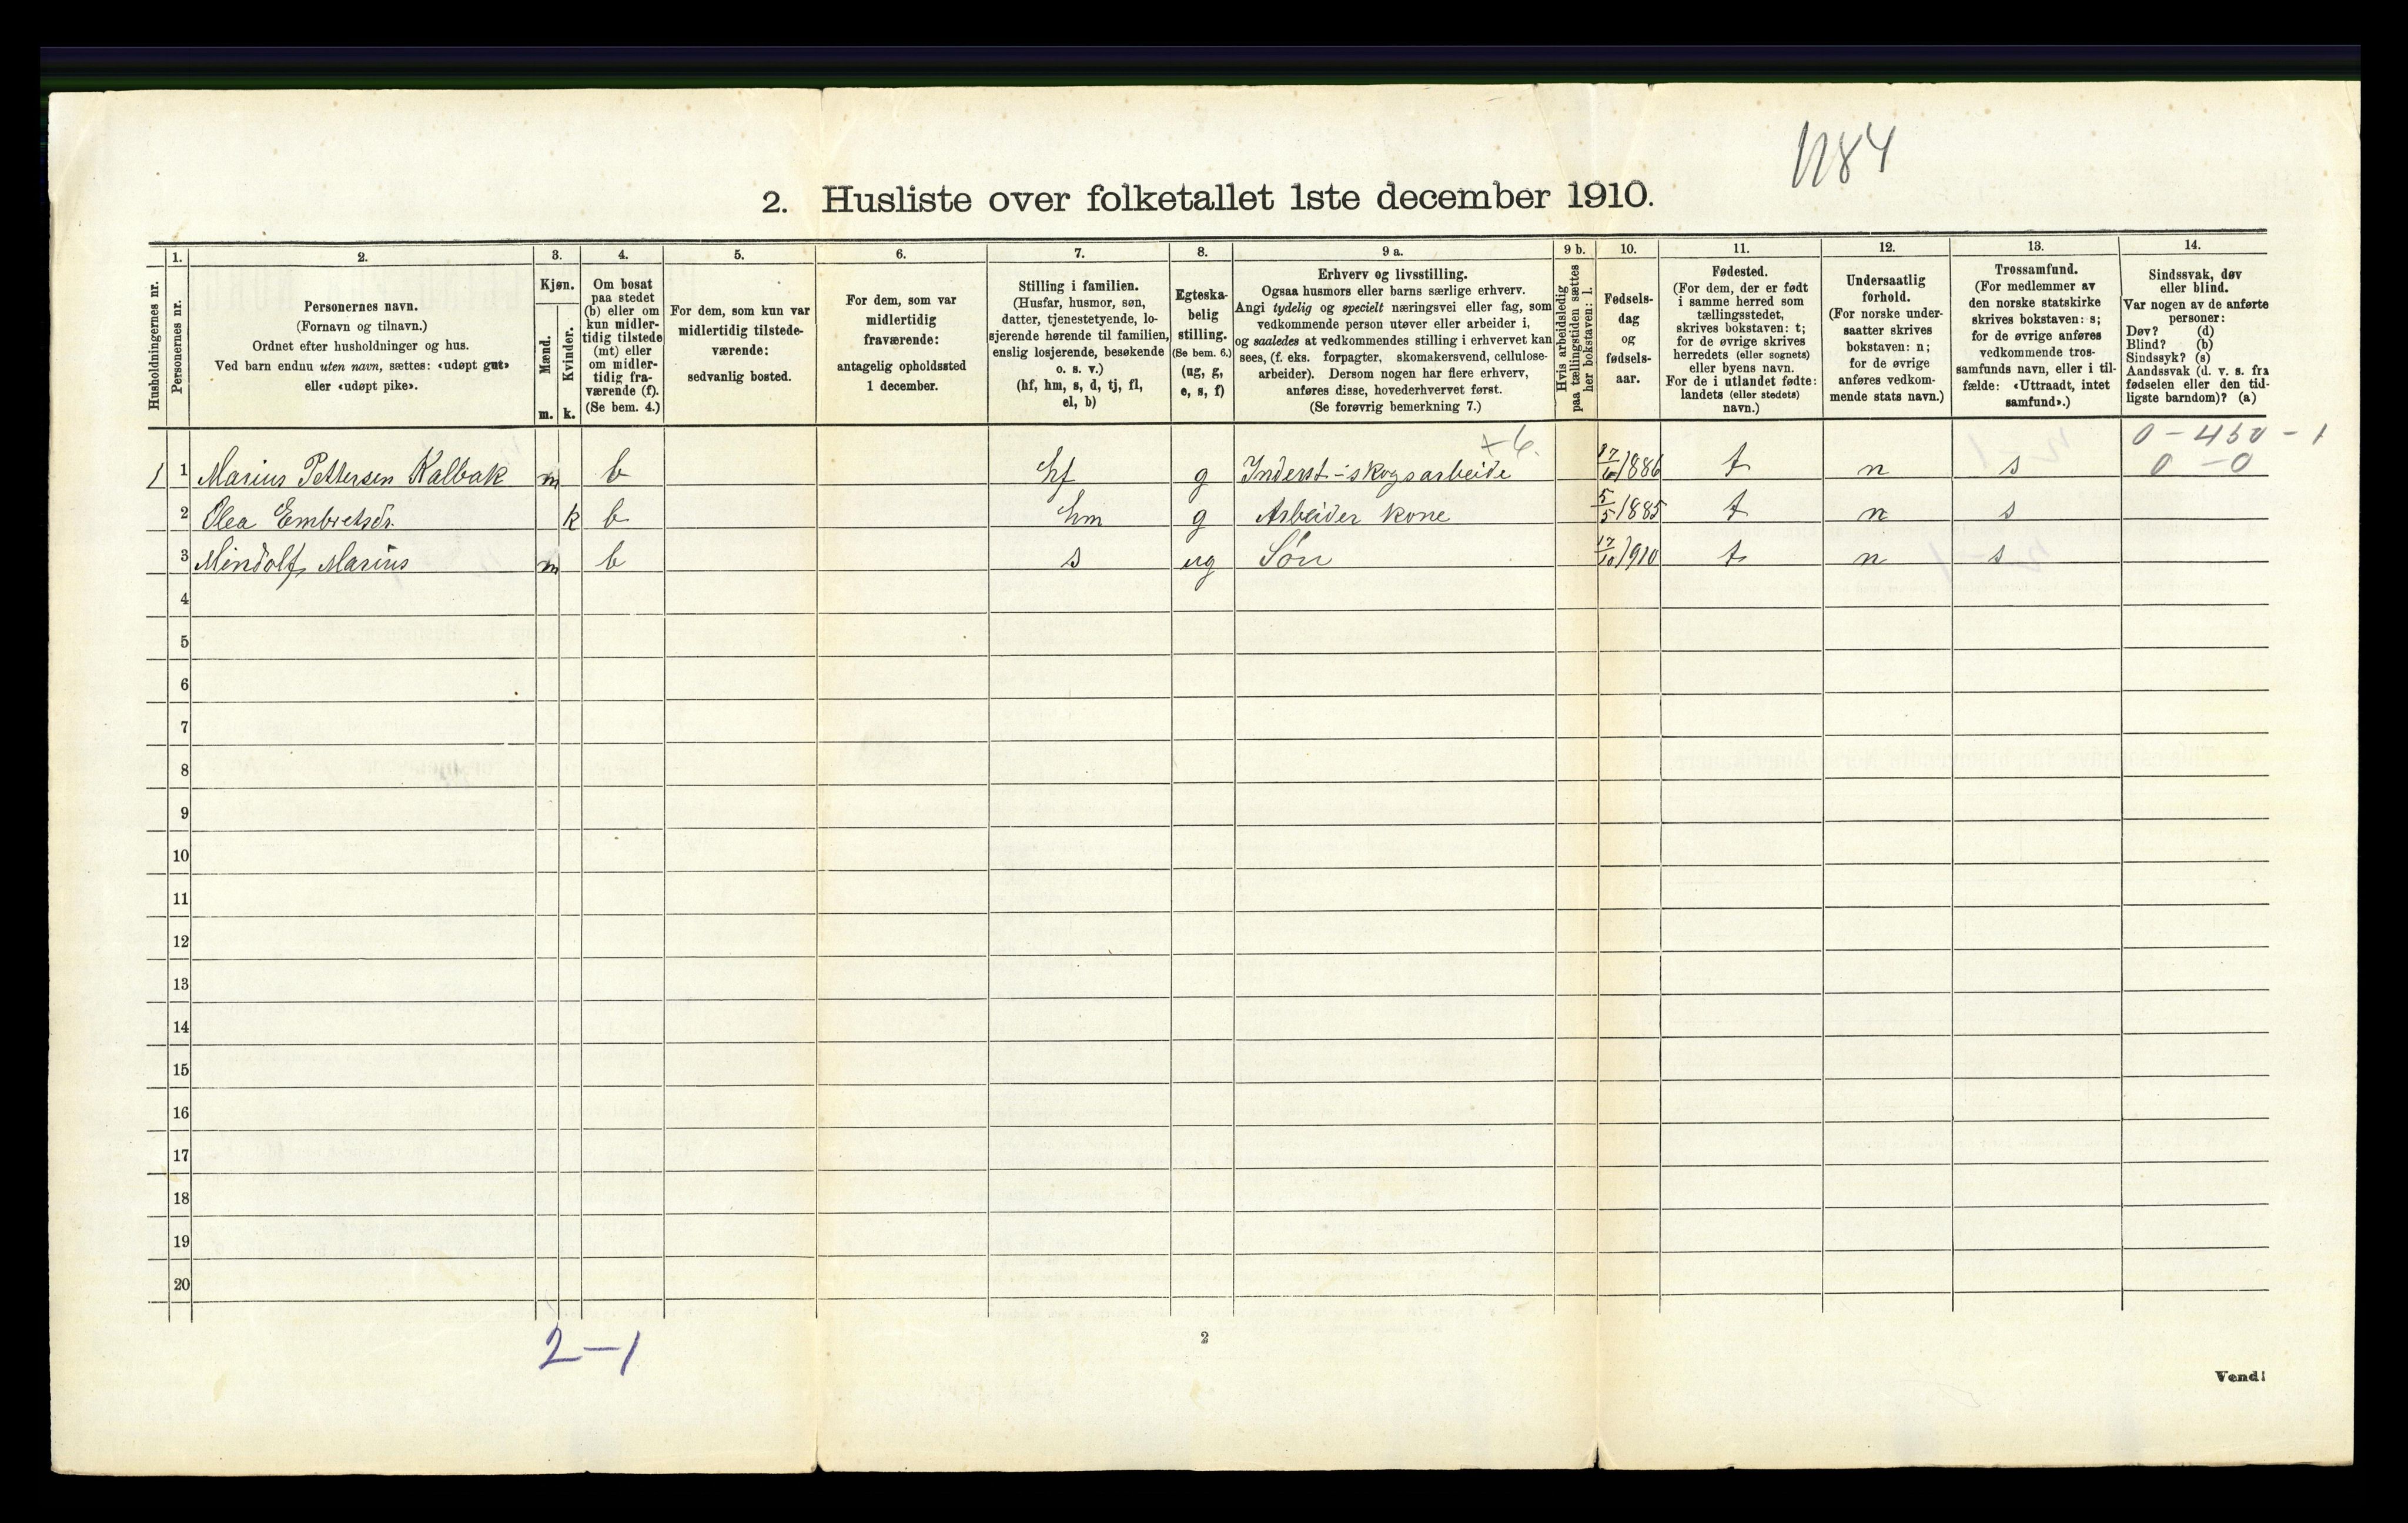 1184
2. Husliste over folketallet 1ste december 1910.
Husholdningernes nr.
1.
Personernes nr.
2.
Personernes navn.
(Fornavn og tilnavn.)
Ordnet efter husholdninger og hus.
Ved barn endnu uten navn, sættes: «udøpt gut»
eller «udøpt pike».
3.
Kjøn.
Mænd.
Kvinder.
m. k.
4.
Om bosat
paa stedet
(b) eller om
kun midler-
tidig tilstede
(mt) eller
om midler-
tidig fra-
værende (f).
(Se bem. 4.)
5.
For dem, som kun var
midlertidig tilstede-
værende:
sedvanlig bosted.
6.
For dem, som var
midlertidig
fraværende:
antagelig opholdssted
1 december.
7.
Stilling i familien.
(Husfar, husmor, søn,
datter, tjenestetyende, lo-
sjerende hørende til familien,
enslig losjerende, besøkende
o. s. v.)
(hf, hm, s, d, tj, fl,
el, b)
8.
Egteska-
belig
stilling.
(Se bem. 6.)
(ug, g,
e, s, f)
9 a.
Erhverv og livsstilling.
Ogsaa husmors eller barns særlige erhverv.
Angi tydelig og specielt næringsvei eller fag, som
vedkommende person utøver eller arbeider i,
og saaledes at vedkommendes stilling i erhvervet kan
sees, (f. eks. forpagter, skomakersvend, cellulose-
arbeider). Dersom nogen har flere erhverv,
anføres disse, hovederhvervet først.
(Se forøvrig bemerkning 7.)
9 b.
Hvis arbeidsledig
paa tællingstiden sættes
her bokstaven: l.
10.
Fødsels-
dag
og
fødsels-
aar.
11.
Fødested.
(For dem, der er født
i samme herred som
tællingsstedet,
skrives bokstaven: t;
for de øvrige skrives
herredets (eller sognets)
eller byens navn.
For de i utlandet fødte:
landets (eller stedets)
navn.)
12.
Undersaatlig
forhold.
(For norske under-
saatter skrives
bokstaven: n;
for de øvrige
anføres vedkom-
mende stats navn.)
13.
Trossamfund.
(For medlemmer av
den norske statskirke
skrives bokstaven: s;
for de øvrige anføres
vedkommende tros-
samfunds navn, eller i til-
fælde: «Uttraadt, intet
samfund».)
14.
Sindssvak, døv
eller blind.
Var nogen av de anførte
personer:
Døv? (d)
Blind? (b)
Sindssyk? (s)
Aandssvak (d. v. s. fra
fødselen eller den tid-
ligste barndom)? (a)
+6. 0-450-1
1 1 Marius Pettersen Kalbak m b hf g Inderst-skogsarbeide 17/6 1886 t n s 0-0
2 Olea Embretsdr. k b hm g Arbeider kone 5/5 1885 t n s
3 Mindolf Marius m b s ug Søn 17/10 1910 t n s
4
5
6
7
8
9
10
11
12
13
14
15
16
17
18
19
20
2-1
2
Vend!